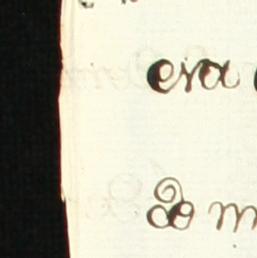 era
de m